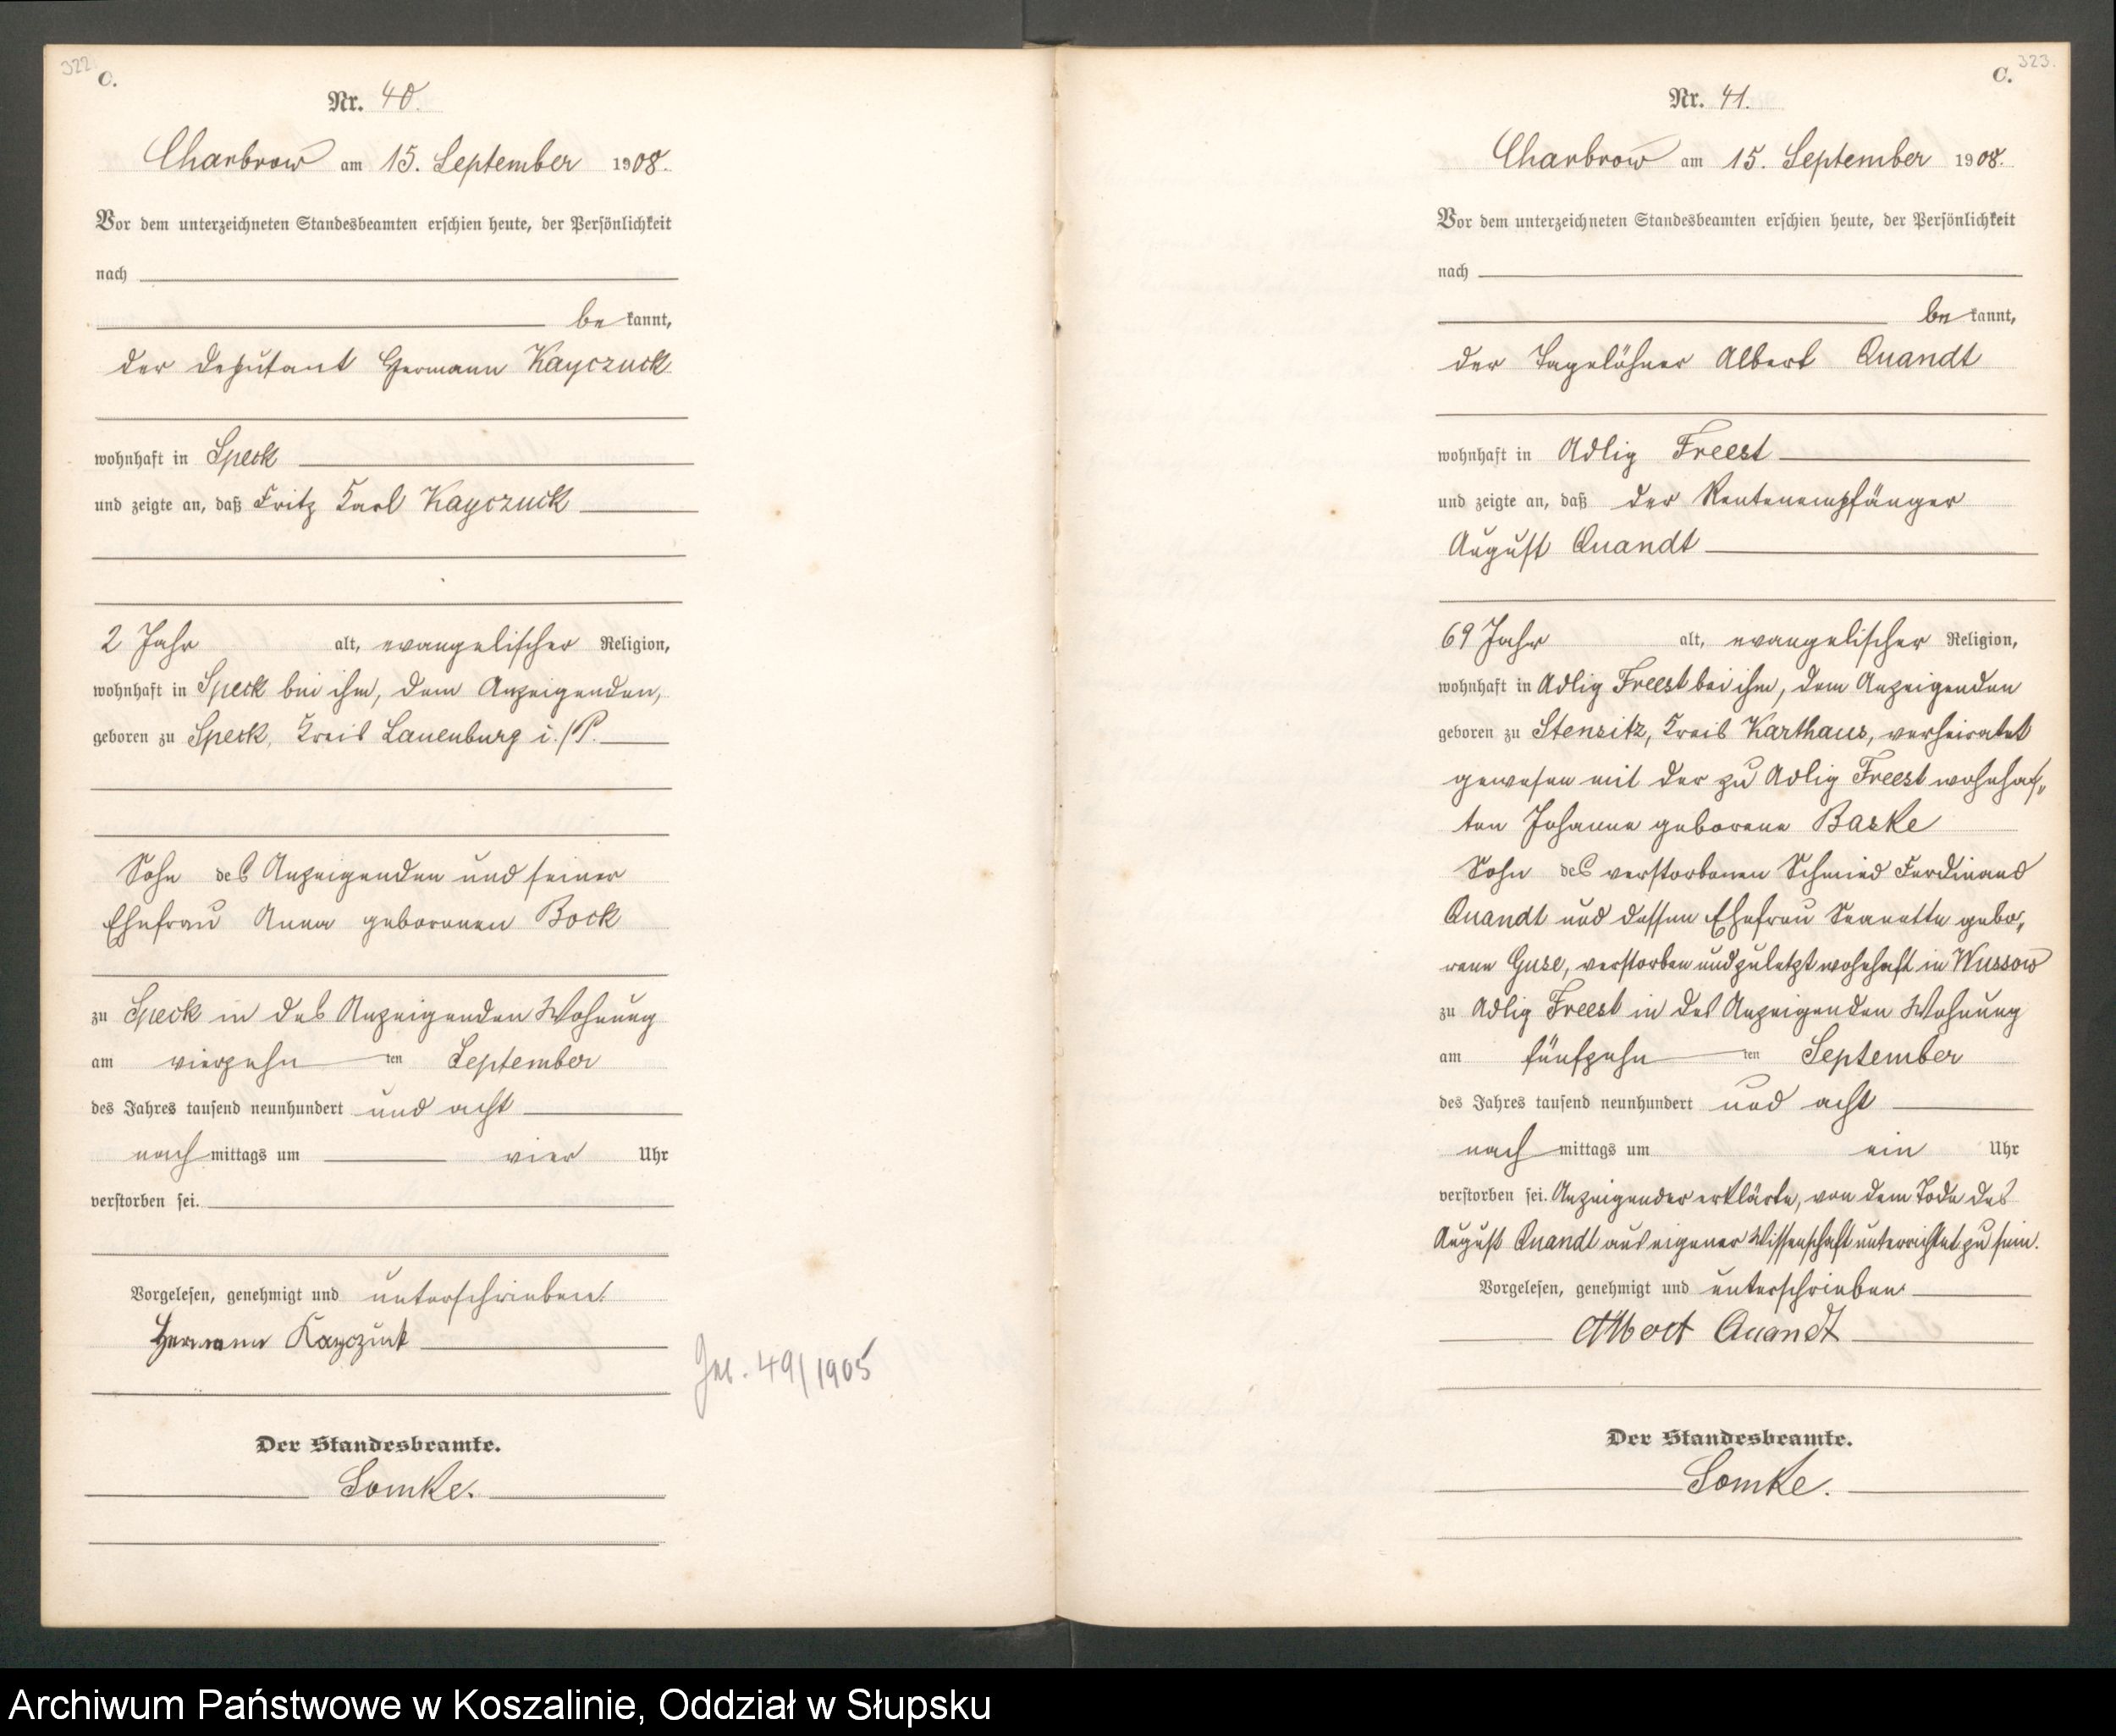 322.
C.
Nr. 40.
Charbrow am 15. September 1908.
Vor dem unterzeichneten Standesbeamten erschien heute, der Persönlichkeit
nach
be kannt,
der Deputant Hermann Kayczuck
wohnhaft in Speck
und zeigte an, daß Fritz Karl Kayczuck
2 Jahr alt, evangelischer Religion,
wohnhaft in Speck bei ihm, dem Anzeigenden,
geboren zu Speck, Kreis Lauenburg i./P.
Sohn des Anzeigenden und seiner
Ehefrau Anna geborenen Bock
zu Speck in des Anzeigenden Wohnung
am vierzehn ten September
des Jahres tausend neunhundert und acht
nach mittags um vier Uhr
verstorben sei.
Vorgelesen, genehmigt und unterschrieben.
Hermann Kayczuck
Geb. 49/1905
Der Standesbeamte.
Somke.
323.
C.
Nr. 41.
Charbrow am 15. September 1908.
Vor dem unterzeichneten Standesbeamten erschien heute, der Persönlichkeit
nach
be kannt,
der Tagelöhner Albert Quandt
wohnhaft in Adlig Freest
und zeigte an, daß der Rentenempfänger
August Quandt
69 Jahr alt, evangelischer Religion,
wohnhaft in Adlig Freest bei ihm, dem Anzeigenden
geboren zu Stensitz, Kreis Karthaus, verheiratet
gewesen mit der zu Adlig Freest wohnhaf„
ten Johanne geborene Baske
Sohn des verstorbenen Schmied Ferdinand
Quandt und dessen Ehefrau gebo„
rene Guse, verstorben und zuletzt wohnhaft in Wussow
zu Adlig Freest in des Anzeigenden Wohnung
am fünfzehn ten September
des Jahres tausend neunhundert und acht
nach mittags um ein Uhr
verstorben sei. Anzeigender erklärte, von dem Tode des
August Quandt aus eigener Wissenschaft unterrichtet zu sein.
Vorgelesen, genehmigt und unterschrieben.
Albert Quandt
Der Standesbeamte.
Somke.
Archiwum Państwowe w Koszalinie, Oddział w Słupsku